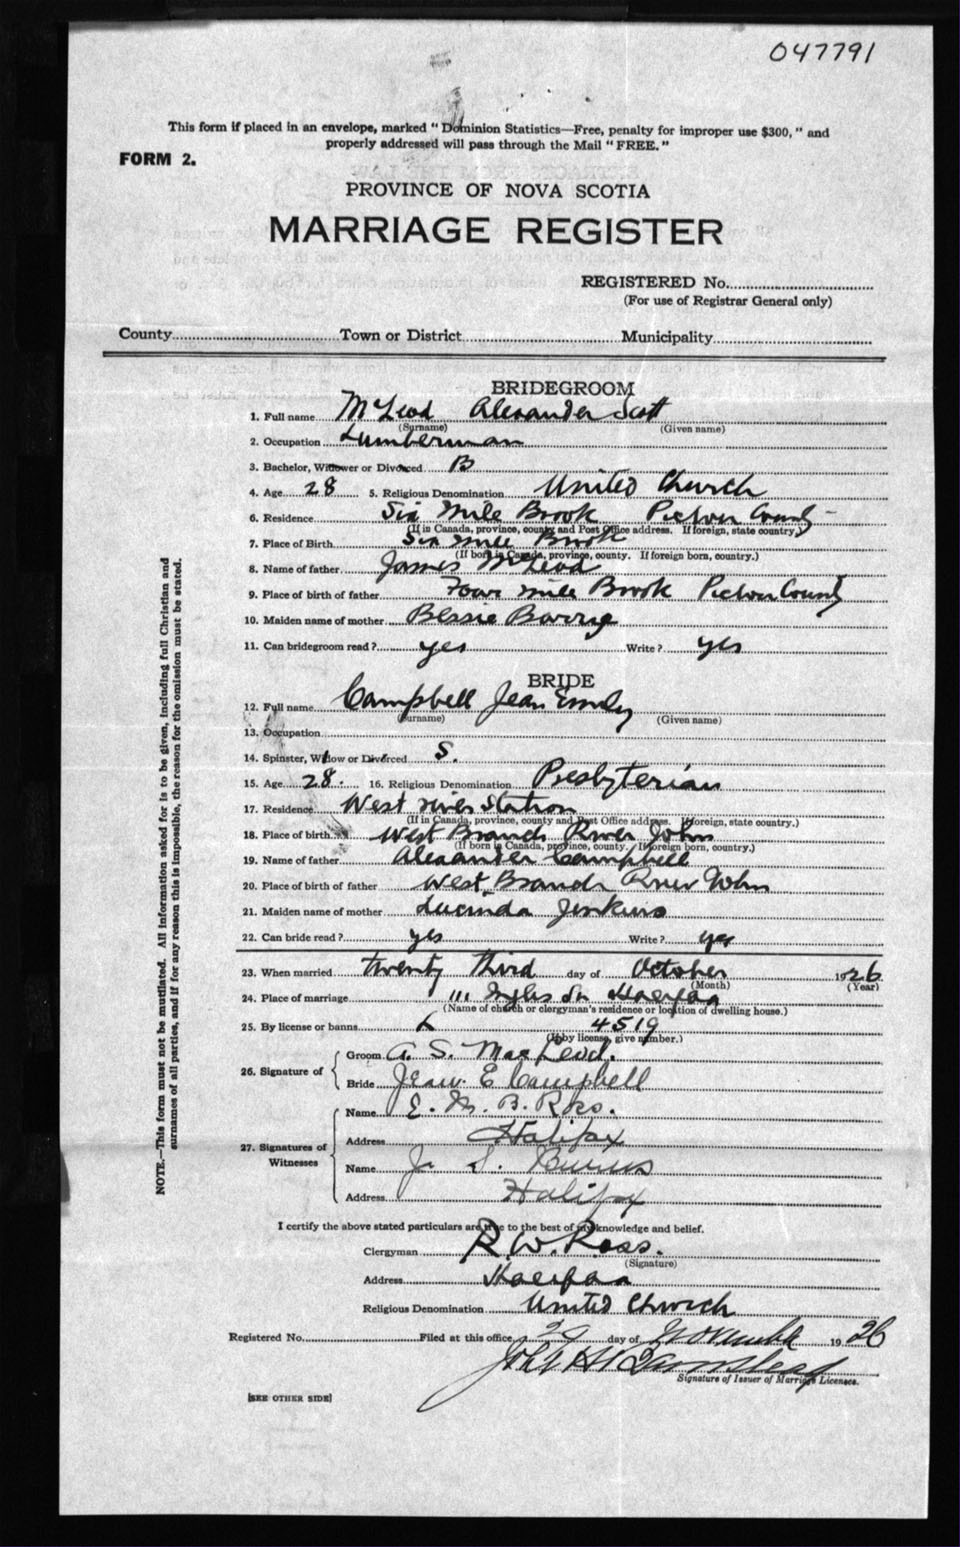 047791
This form if placed in an envelope, marked "Dominion Statistics—Free, penalty for improper use $300," and
properly addressed will pass through the Mail "FREE."
FORM 2.
PROVINCE OF NOVA SCOTIA
MARRIAGE REGISTER
REGISTERED No.
(For use of Registrar General only)
County Town or District Municipality
BRIDEGROOM
1. Full name McLeod Alexander Scott
(Surname) (Given name)
2. Occupation Lumberman
3. Bachelor, Widower or Divorced B
4. Age 28 5. Religious Denomination United Church
6. Residence Six Mile Brook Pictou County
(If in Canada, province, county and Post Office address. If foreign, state country.)
7. Place of Birth Six Mile Brook
(If born in Canada, province, county. If foreign born, country.)
8. Name of father James McLeod
9. Place of birth of father Four Mile Brook Pictou County
10. Maiden name of mother Bessie Barrie
11. Can bridegroom read? yes Write? yes
BRIDE
12. Full name Campbell Jean Emily
(Surname) (Given name)
13. Occupation
14. Spinster, Widow or Divorced S.
15. Age 28. 16. Religious Denomination Presbyterian
17. Residence West river Station
(If in Canada, province, county and Post Office address. If foreign, state country.)
18. Place of birth West Branch River John
(If born in Canada, province, county. If foreign born, country.)
19. Name of father Alexander Campbell
20. Place of birth of father West Branch River John
21. Maiden name of mother Lucinda Jenkins
22. Can bride read? yes Write? yes
23. When married twenty third day of October 1926
(Month) (Year)
24. Place of marriage Halifax
(Name of church or clergyman's residence or location of dwelling house.)
25. By license or banns L 4519
(If by license, give number.)
26. Signature of
Groom A. S. MacLeod.
Bride Jean E Campbell
27. Signatures of Witnesses
Name E. M. B. Ross.
Address Halifax
Name J. S.
Address Halifax
I certify the above stated particulars are true to the best of my knowledge and belief.
Clergyman R. W. Ross.
(Signature)
Address Halifax
Religious Denomination United Church
Registered No. Filed at this office day of November 1926
John
Signature of Issuer of Marriage Licenses.
[SEE OTHER SIDE]
NOTE.—This form must not be mutilated. All information asked for is to be given, including full Christian and
surnames of all parties, and if for any reason this is impossible, the reason for the omission must be stated.